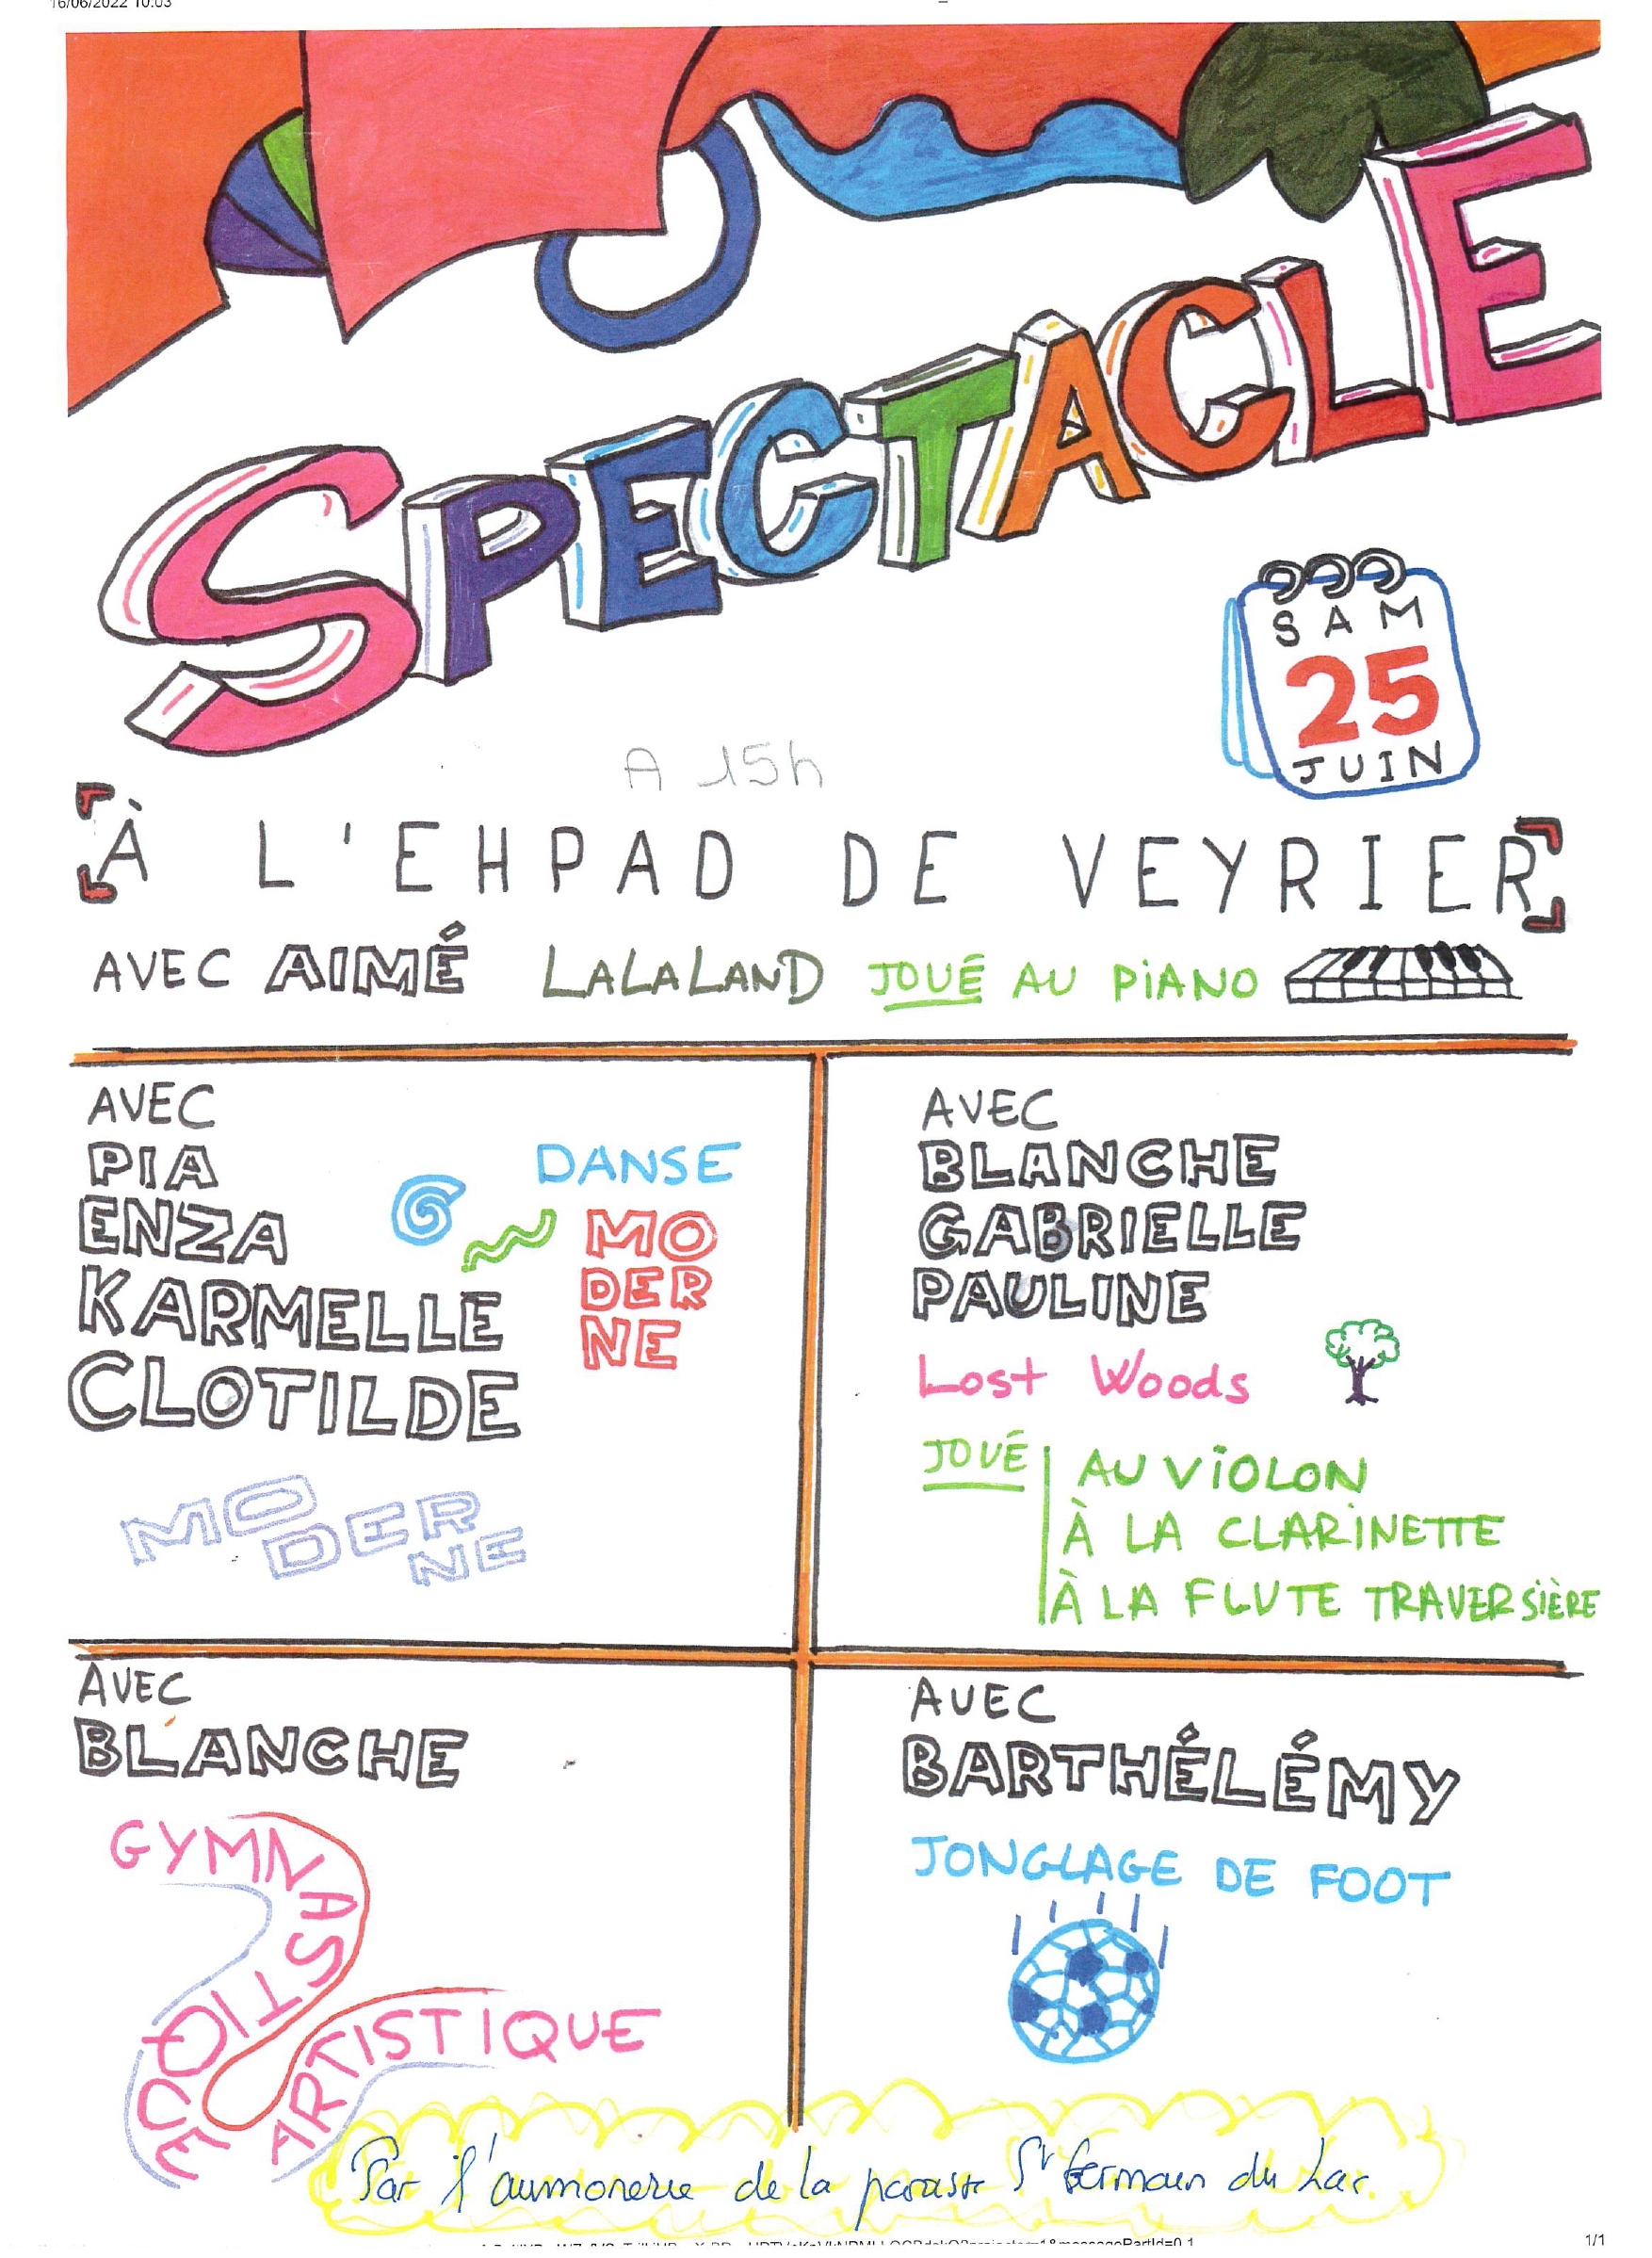 16/06/2022 10:03
SPECTACLE
SAM
25
JUIN
A 15h
À L'EHPAD DE VEYRIER
AVEC AIMÉ LALALAND JOUÉ AU PIANO
AVEC
PIA
ENZA
KARMELLE
CLOTILDE
DANSE
MO
DER
NE
MO
DER
NE
AVEC
BLANCHE
GABRIELLE
PAULINE
Lost Woods
JOUÉ AU VIOLON
À LA CLARINETTE
À LA FLUTE TRAVERSIÈRE
AVEC
BLANCHE
GYMNASTIQUE
ARTISTIQUE
AVEC
BARTHÉLÉMY
JONGLAGE DE FOOT
Par l'aumonerie de la paroisse St Germain du Lac.
1/1